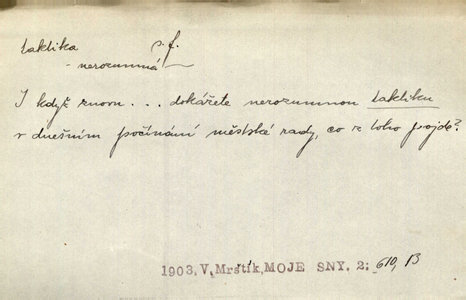 taktika s. f.
- nerozumná
I když znovu . . . dokážete nerozumnou taktiku
v dnešním počínání městské rady, co z toho pojde?
1903, V. Mrštík, MOJE SNY. 2: 610, 13